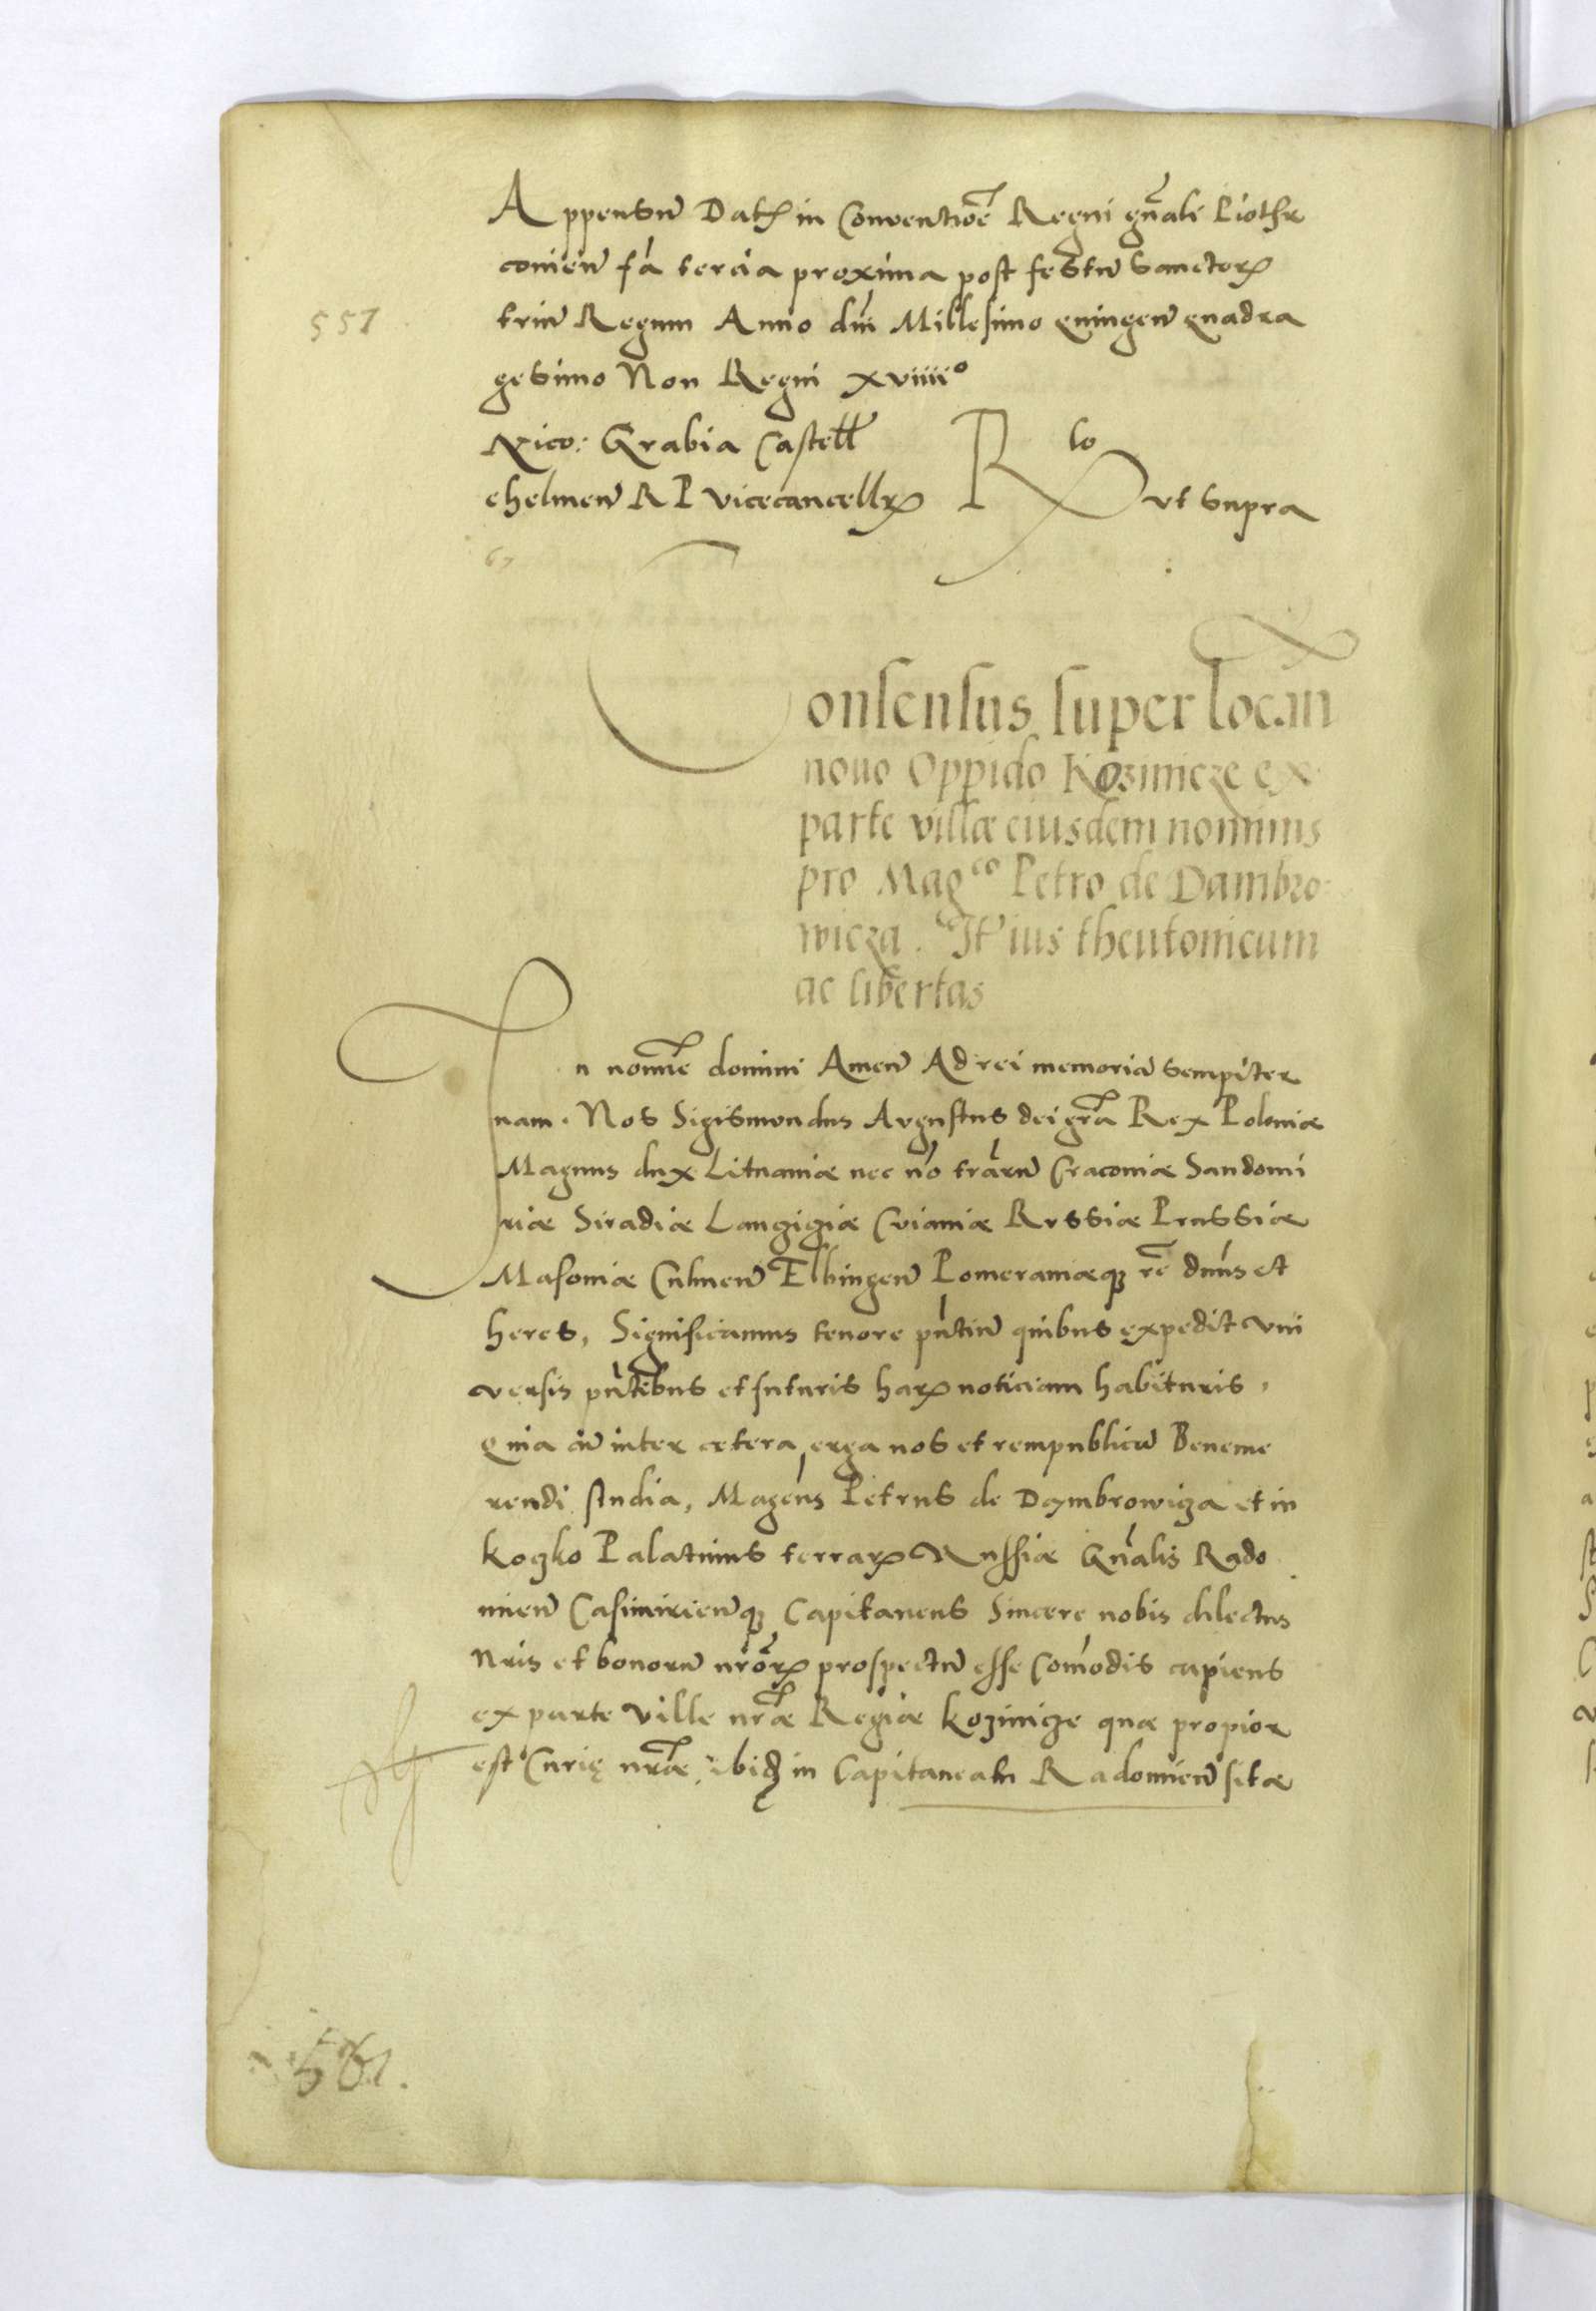 Appensũ Datꝝ in Conventiõe Regni gñali Piothr
conieñ fã tercia proxima post festũ sanctorꝝ
557
triũ Regum Anno dñi Millesimo quingeñ quadra
gesimo Non Regni xviiiiº
Nico: Grabia Castell
chelmeñ R P Vicecancellrꝝ Rlo vt supra
Consensus super locan̄
nouo Oppido Kozinicze ex
parte villæ eiusdem nominis
pro Magco Petro de Dambro
wicza. It ius theutonicum
ac libertas
In nomie domini Ameñ Ad rei memoriã sempiter
nam. Nos Sigismondus Avgustus dei gra Rex Poloniæ
Magnus dux Lituaniæ nec nõ trarũ Cracoviæ Sandomi
riæ Siradiæ Langiziæ Cviaviæ Rvssiæ Prussiæ
Masoviæ Culmeñ Elbingeñ Pomeraniæqꝫ rẽ dñus et
heres, Significamus tenore pñtiũ quibus expedit vni
versis pñtibus et futuris harꝝ noticiam habituris,
Quia cũ inter cetera erga nos et rempublicã Beneme
rendi studia, Magcus Petrus de Dambrowiza et in
koczko Palatinus terrarꝝ Russiæ Gñalis Rado
mieñ Casimirieñqꝫ Capitaneus Sincere nobis dilectus
Nris et bonorũ nrõrꝝ prospectũ esse Comodis cupiens
ex parte Ville nræ Regiæ kozinicze quæ propior
est Curię nræ ibidꝫ in Capitaneatu Radomieñ sitæ
561.